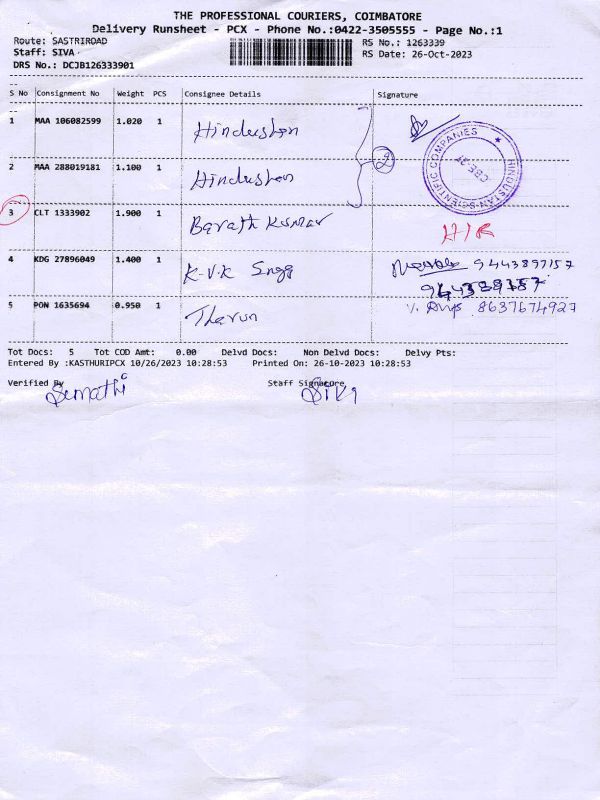 THE PROFESSIONAL COURIERS, COIMBATORE
Delivery Runsheet - PCX - Phone No.:0422-3505555 - Page No.:1
Route: SASTRIROAD
Staff: SIVA
DRS No.: DCJB126333901
RS No.: 1263339
RS Date: 26-Oct-2023
S No Consignment No Weight PCS Consignee Details Signature
1 MAA 106082599 1.020 1 Hindusthan
2 MAA 288019181 1.100 1 Hindusthan
2
HINDUSTAN SCIENTIFIC COMPANIES
CBE-27
3 CLT 1333902 1.900 1 Barath Kumar
4 KDG 27896049 1.400 1 K-V.K Engg 9443897157
5 PON 1635694 0.950 1 Tharun 8637674927
Tot Docs: 5 Tot COD Amt: 0.00 Delvd Docs: Non Delvd Docs: Delvy Pts:
Entered By :KASTHURIPCX 10/26/2023 10:28:53 Printed On: 26-10-2023 10:28:53
Verified By Staff Signature
Semathi Siva